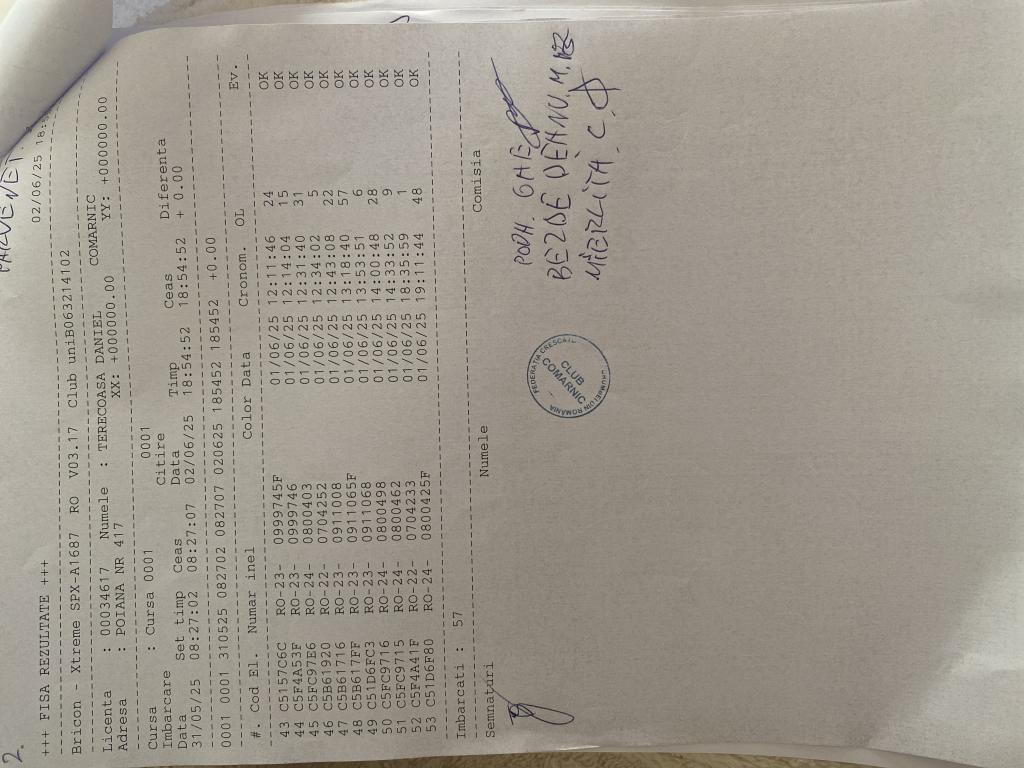 2.
+++ FISA REZULTATE +++ 02/06/25
Bricon - Xtreme SPX-A1687 RO V03.17 Club uniB063214102
Licenta : 00034617 Numele : TERECOASA DANIEL COMARNIC
Adresa : POIANA NR 417 XX: +000000.00 YY: +000000.00
Cursa : Cursa 0001 0001
Imbarcare Citire
Data Set timp Ceas Data Timp Ceas Diferenta
31/05/25 08:27:02 08:27:07 02/06/25 18:54:52 18:54:52 + 0.00
0001 0001 310525 082702 082707 020625 185452 185452 +0.00
#. Cod El. Numar inel Color Data Cronom. OL Ev.
43 C5157C6C RO-23- 0999745F 01/06/25 12:11:46 24 OK
44 C5F4A53F RO-23- 0999746 01/06/25 12:14:04 15 OK
45 C5FC97E6 RO-24- 0800403 01/06/25 12:31:40 31 OK
46 C5B61920 RO-22- 0704252 01/06/25 12:34:02 5 OK
47 C5B61716 RO-23- 0911008 01/06/25 12:43:08 22 OK
48 C5B617FF RO-23- 0911065F 01/06/25 13:18:40 57 OK
49 C51D6FC3 RO-23- 0911068 01/06/25 13:53:51 6 OK
50 C5FC9716 RO-24- 0800498 01/06/25 14:00:48 28 OK
51 C5FC9715 RO-24- 0800462 01/06/25 14:33:52 9 OK
52 C5F4A41F RO-22- 0704233 01/06/25 18:35:59 1 OK
53 C51D6F80 RO-24- 0800425F 01/06/25 19:11:44 48 OK
Imbarcati : 57
Semnaturi Numele Comisia
FEDERATIA
CLUB
COMARNIC
DIN ROMÂNIA
BEZDE
MIERLITA. C.